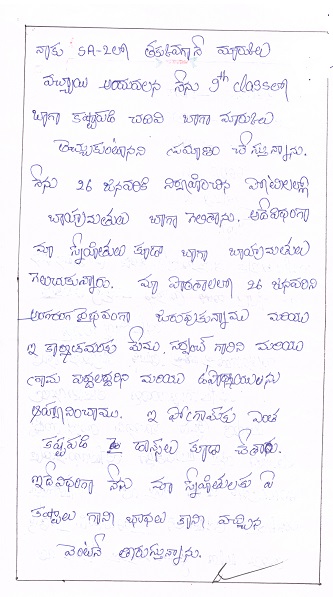 నాకు SA-2లో తక్కువగానే మార్కులు
వచ్చాయి అయినను నేను 9th classలో
బాగా కష్టపడి చదివి బాగా మార్కులు
తెచ్చుకుంటానని ప్రమాణం చేస్తున్నాను.
నేను 26 జనవరికి నిర్వహించిన పోటీలలో
బాహుమతులు బాగా గెలిచాను. అదేవిధంగా
మా స్నేహితులు కూడా బాగా బాహుమతులు
గెలుచుకున్నారు. మా పాఠశాలలో 26 జనవరిని
అంగరంగ వైభవంగా జరుపుకున్నాము మరియు
ఇ కార్యక్రమముకు మేము, సర్పంచ్ గారిని మరియు
గ్రామ పెద్దలందరిని మరియు ఉపాధ్యాయులను
ఆహ్వానించాము. ఇ ప్రోగ్రామ్‌కు ఎంత
కష్టపడి డాన్సులు కూడా చేశారు.
ఇదేవిధంగా నేను మా స్నేహితులకు ఏ
కష్టాలు గాని బాధలు కాని వచ్చిన
వెంటనే తీరుస్తున్నాను.